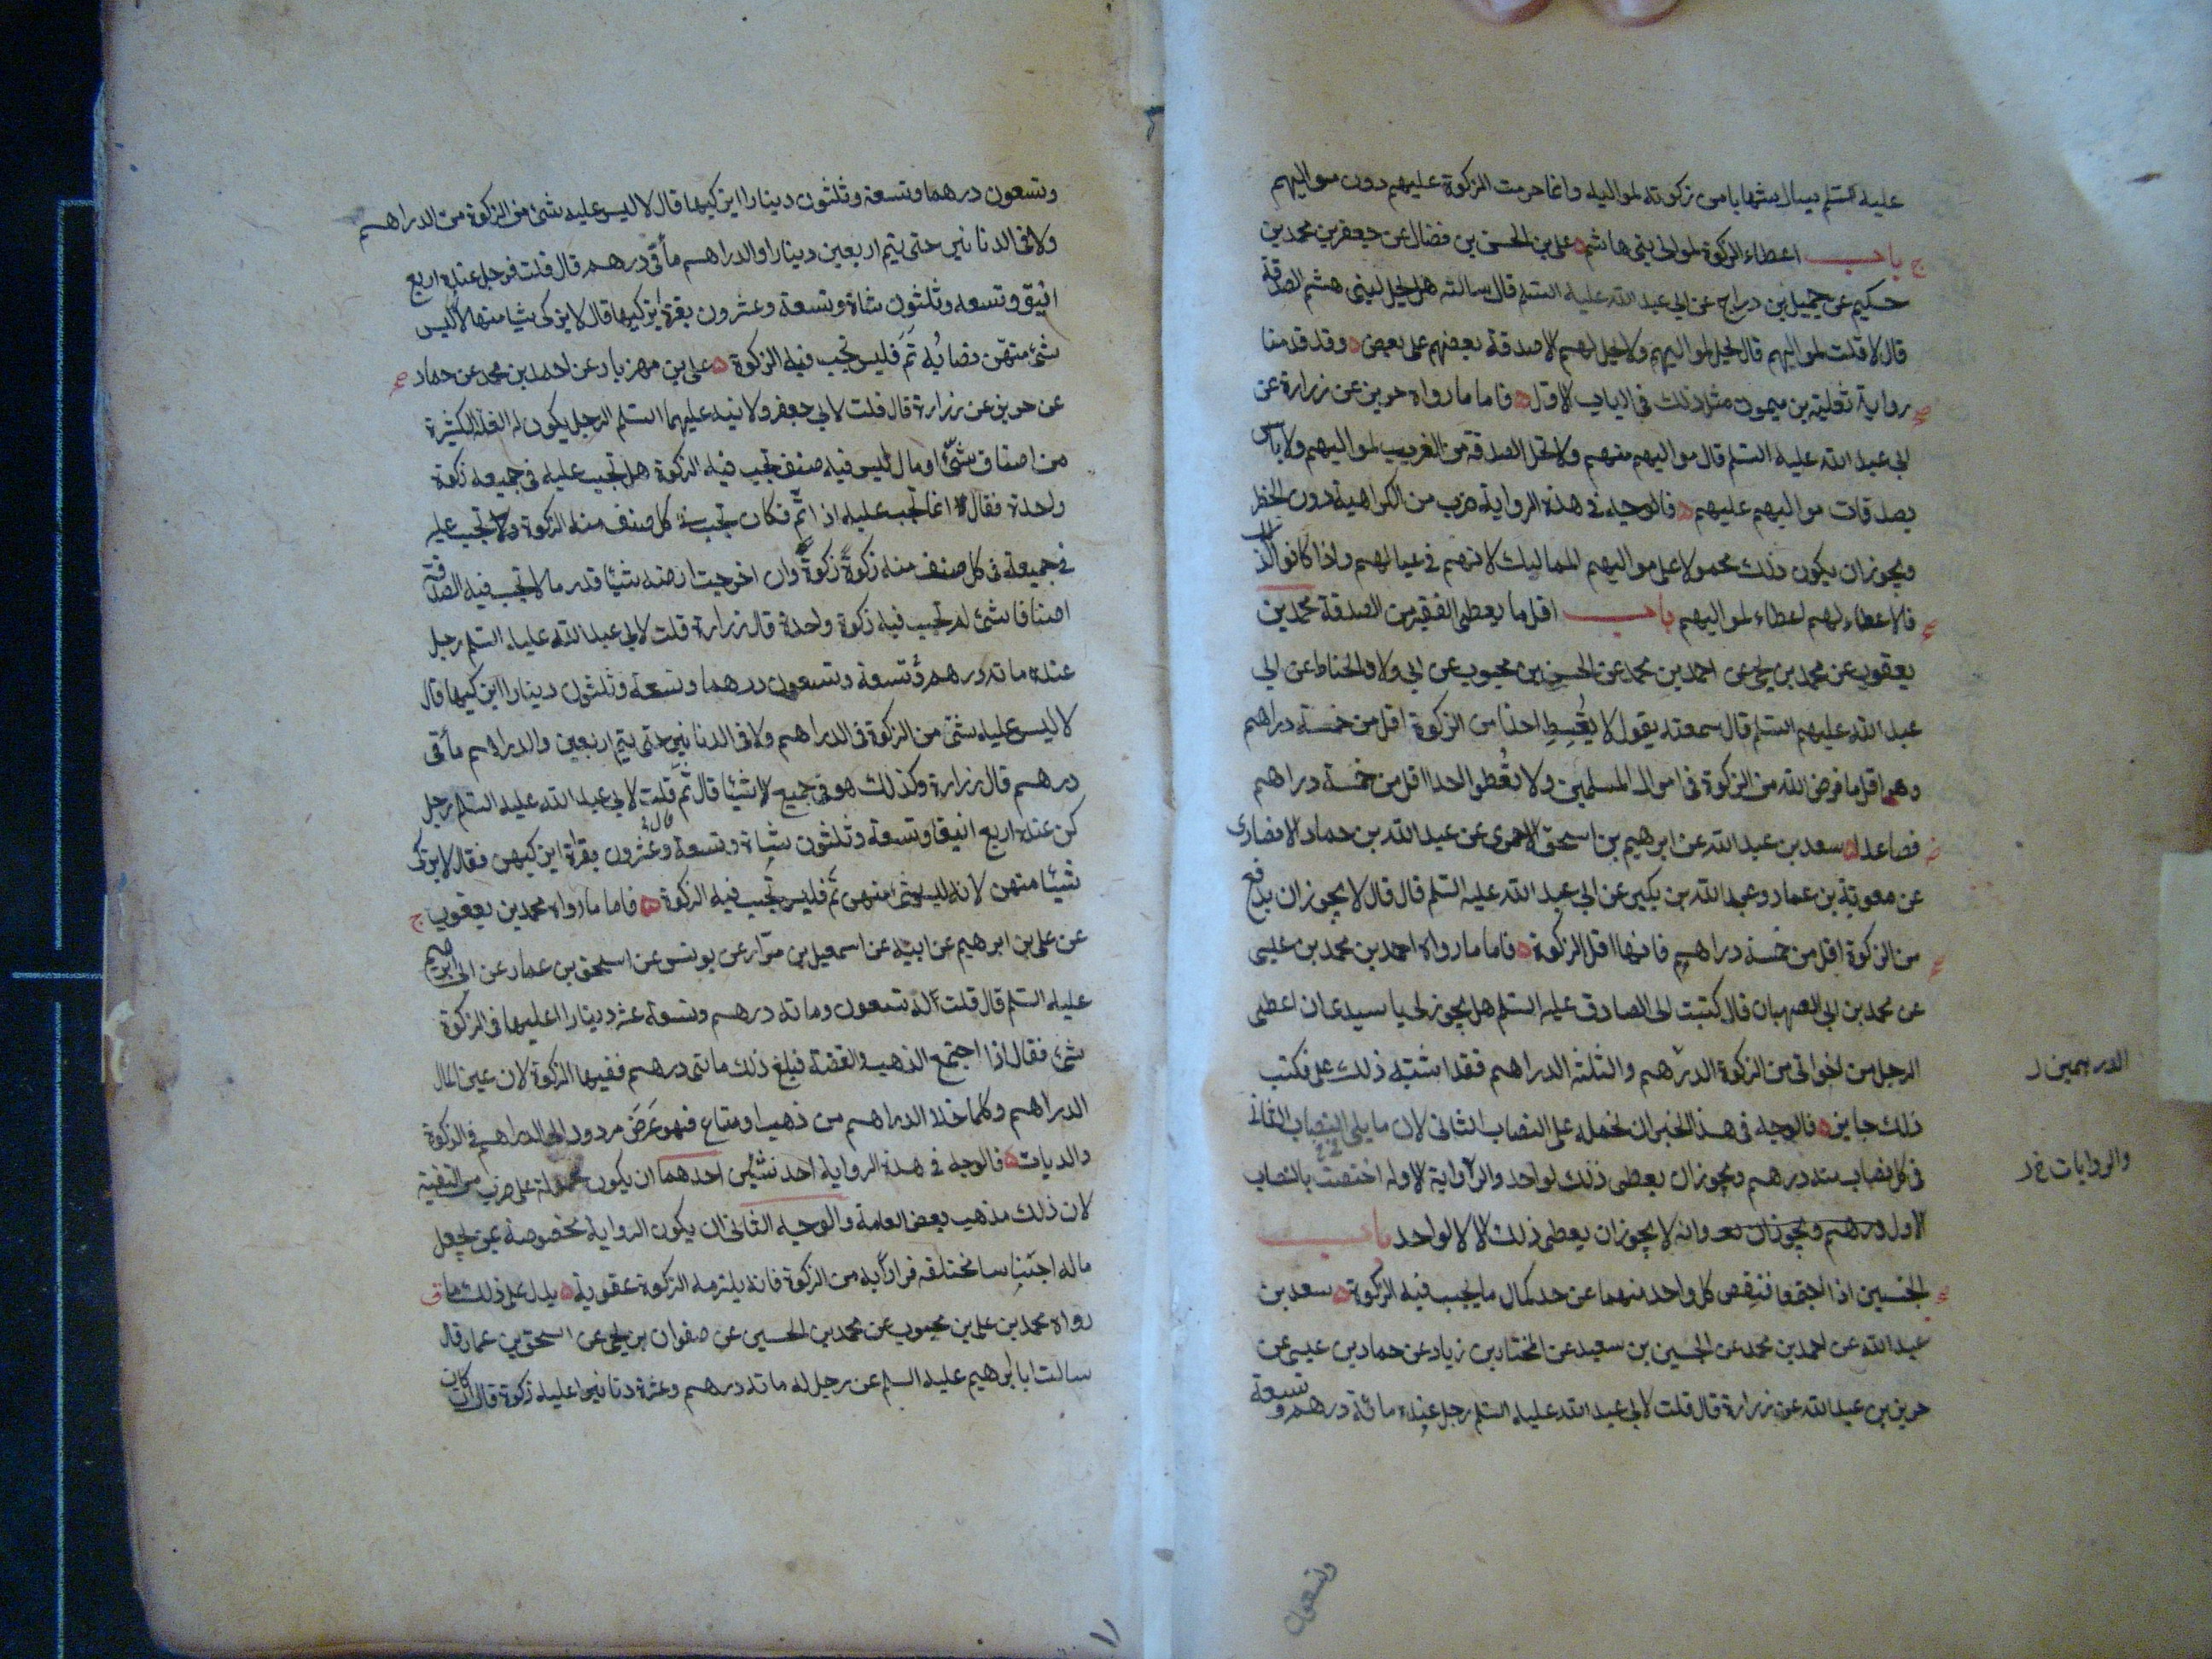 عليه السلم يسال شهابا من زكوته لمواليه وانما حرمت الزكوة عليهم دون مواليهم
باب اعطاء الزكوة لموالى بنى هاشم على بن الحسن بن فضال عن جعفر بن محمد بن
حكيم عن جميل بن دراج عن ابى عبد الله عليه السلم قال سالته هل يحل لبنى هشم الصدقة
قال لا قلت لمواليهم قال تحل لمواليهم ولا تحل لهم الا صدقة بعضهم على بعض وقد قدمنا
رواية ثعلبة بن ميمون مثل ذلك فى الباب الاول فاما ما رواه حريز عن زرارة عن
ابى عبد الله عليه السلم قال مواليهم منهم ولا تحل الصدقة من الغريب لمواليهم ولا باس
بصدقات مواليهم عليهم فالوجه فى هذه الرواية ضرب من الكراهية دون الحظر
ويجوز ان يكون ذلك محمولا على مواليهم المماليك لانهم فى عيالهم واذا كانوا كذلك
فالاعطاء لهم اعطاء لمواليهم باب اقل ما يعطى الفقير من الصدقة محمد بن
يعقوب عن محمد بن يحيى عن احمد بن محمد عن الحسن بن محبوب عن ابى ولاد الحناط عن ابى
عبد الله عليهم السلم قال سمعته يقول لا يعط احدا من الزكوة اقل من خمسة دراهم
وهو اقل ما فرض الله من الزكوة فى اموال المسلمين ولا تعطوا احدا اقل من خمسة دراهم
فصاعدا سعد بن عبد الله عن ابرهيم بن اسحق الاحمرى عن عبد الله بن حماد الانصارى
عن معوية بن عمار وعبد الله بن بكير عن ابى عبد الله عليه السلم قال قال لا يجوز ان يدفع
من الزكوة اقل من خمسة دراهم فانها اقل الزكوة فاما ما رواه احمد بن محمد بن عيسى
عن محمد بن ابى الصهبان قال كتبت الى الصادق عليه السلم هل يجوز لى يا سيدى ان اعطى
الرجل من اخوانى من الزكوة الدرهم والثلثه الدراهم فقد اشتبه ذلك على فكتب
الدرهمين
ذلك جايز فالوجه فى هذا الخبر ان نحمله على النصاب الثانى لان ما يلى النصاب الثانى
فى كل نصاب منه درهم ويجوز ان يعطى ذلك لواحد والرواية الاوله اختصت بالنصاب
والروايات خ ر
الاول درهم ويجوز ان وانه لا يجوز ان يعطى ذلك الا لواحد باب
الجنسين اذا اجتمعا فنقص كل واحد منهما عن حد كمال ما يجب فيه الزكوة سعد بن
عبد الله عن احمد بن محمد عن الحسين بن سعيد عن المختار بن زياد عن حماد بن عيسى عن
حريز بن عبد الله عن زرارة قال قلت لابى عبد الله عليه السلم رجل عنده مائة درهم وتسعة
وتسعون
وتسعون درهما وتسعة وثلثون دينارا ايزكيها قال لا ليس عليه شئ من الزكوة من الدراهم
ولا فى الدنانير حتى يتم اربعين دينارا والدراهم مأتى درهم قال قلت فرجل عنده اربع
انيق وتسعه وثلثون شاة وتسعة وعشرون بقرة ايزكيها قال لا يزكى شيا منها لانه ليس
شئ منهن نصابه تم فليس تجب فيه الزكوة على بن مهزيار عن احمد بن محمد عن حماد
عن حريز عن زرارة قال قلت لابى جعفر ولابنه عليهما السلم الرجل يكون له الغلة الكثيرة
من اصناف شتى او مال ليس فيه صنف تجب فيه الزكوة هل تجب عليه فى جميعه زكوة
واحدة فقال لا انما تجب عليه اذا تم فكان تجب فى كل صنف منه الزكوة ولا تجب عليه
فى جميعه فى كل صنف منه زكوة زكوة وان اخرجت ارضه شيئا قدر ما لا تجب فيه الصدقة
اصنافا شئ لم تجب فيه زكوة واحدة قال زرارة قلت لابى عبد الله عليه السلم رجل
عنده ماته درهم وتسعة وتسعون درهما وتسعة وثلثون دينارا ايزكيها قال
لا ليس عليه شئ من الزكوة فى الدراهم ولا فى الدنانير حتى يتم اربعين والدراهم مأتى
درهم قال زرارة وكذلك هو فى جميع الاشيا قال ثم قلت لابى عبد الله عليه السلم رجل
كن عنده اربع انيق وتسعة وثلثون شاة وتسعة وعشرون بقرة ايزكيهن فقال لا يزكى
شيئا منهن لانه ليس شئ منهن تم فليس تجب فيه الزكوة فاما ما رواه محمد بن يعقوب
عن على بن ابرهيم عن ابيه عن اسمعيل بن مرار عن يونس عن اسحق بن عمار عن ابى ابرهيم
عليه السلم قال قلت له تسعون وماته درهم وتسعة عشر دينارا اعليها فى الزكوة
شئ فقال اذا اجتمع الذهب والفضة فبلغ ذلك مائتى درهم ففيها الزكوة لان عين المال
الدراهم وكلما خلا الدراهم من ذهب او متاع فهو عرض مردود الى الدراهم فى الزكوة
والديات فالوجه فى هذه الرواية احد شيئين احدهما ان يكون محمولة على ضرب من التقية
لان ذلك مذهب بعض العامة والوجه الثانى ان يكون الرواية مخصوصة بمن يجعل
ماله اجناسا مختلفه فرارا به من الزكوة فانه يلزمه الزكوة عقوبة يدل على ذلك ما
رواه محمد بن على بن محبوب عن محمد بن الحسين عن صفوان بن يحيى عن اسحق بن عمار قال
سالت ابا ابرهيم عليه السلم عن رجل له ماته درهم وعشرة دنانير اعليه زكوة قال ان كان